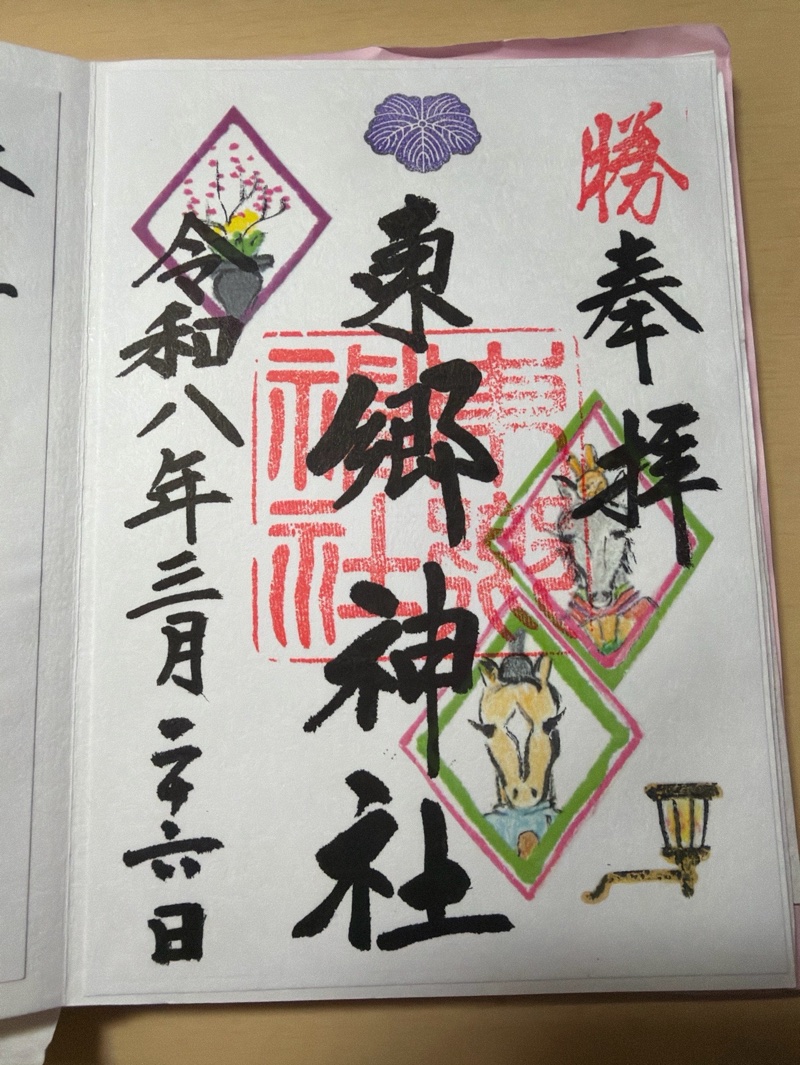 勝
奉拝
東郷神社
東郷神社
令和八年三月二十六日